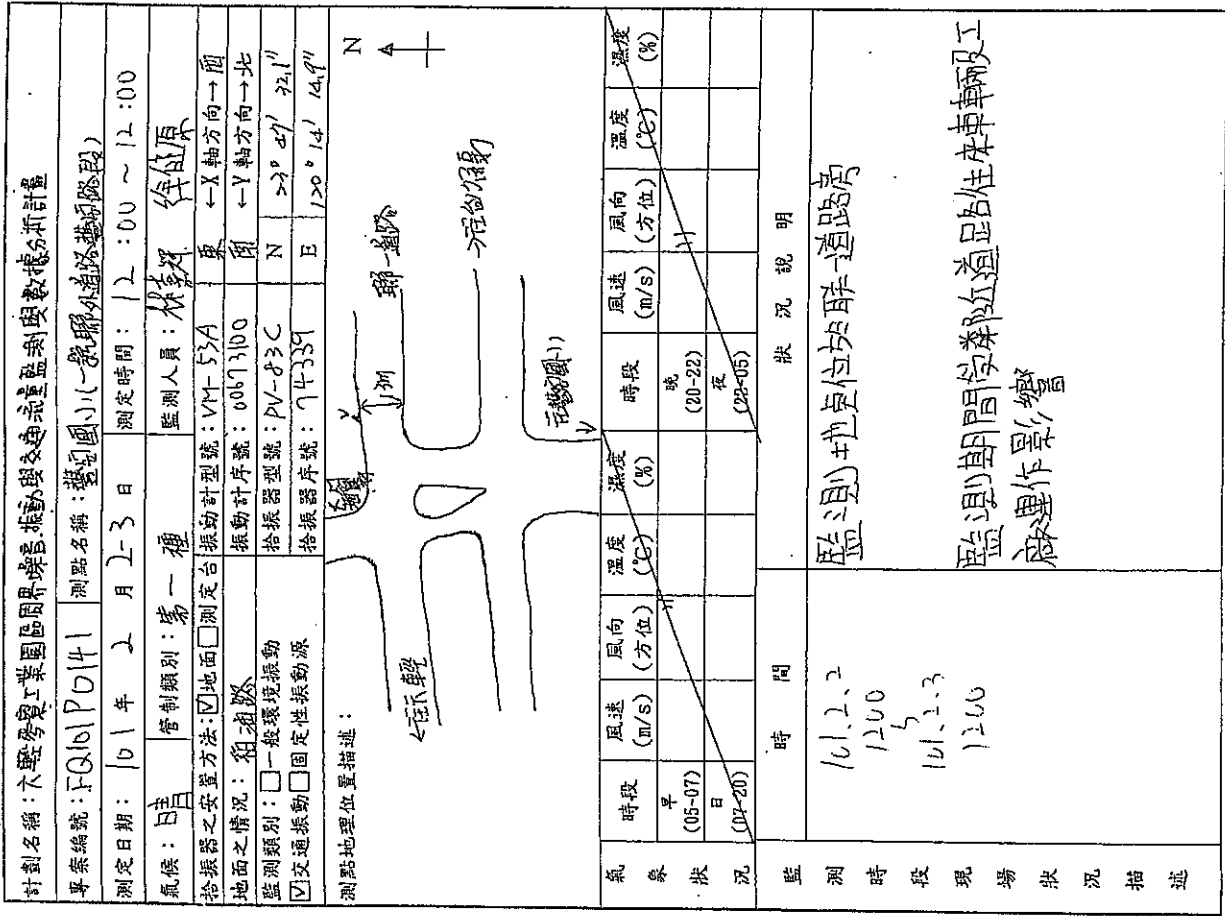 計劃名稱：六輕麥寮工業園區周界噪音、振動與交通流量監測與數據分析計畫
專案編號：FQ101P0141 測點名稱：豐安國小(一號聯外道路豐安路段)
測定日期：101年 2 月 2-3 日 測定時間：12:00～12:00
氣候：晴 管制類別：第一種 監測人員：
拾振器之安置方法：☑地面□測定台 振動計型號：VM-53A 東 ←X軸方向→西
地面之情況：柏油路 振動計序號：00673100 南 ←Y軸方向→北
監測類別：□一般環境振動 拾振器型號：PV-83C N 23° 47' 32.1"
☑交通振動□固定性振動源 拾振器序號：74339 E 120° 14' 14.9"
測點地理位置描述：
N
1m
聯一道路
←往六輕
氣象狀況
時段 風速(m/s) 風向(方位) 溫度(℃) 濕度(%) 時段 風速(m/s) 風向(方位) 溫度(℃) 濕度(%)
早(05-07) 晚(20-22)
日(07-20) 夜(22-05)
監測時段現場狀況描述
時間 狀況說明
101.2.2
1200
101.2.3
1200
監測地點位於聯一道路旁
監測期間受鄰近道路往來車輛及工
廠運作影響